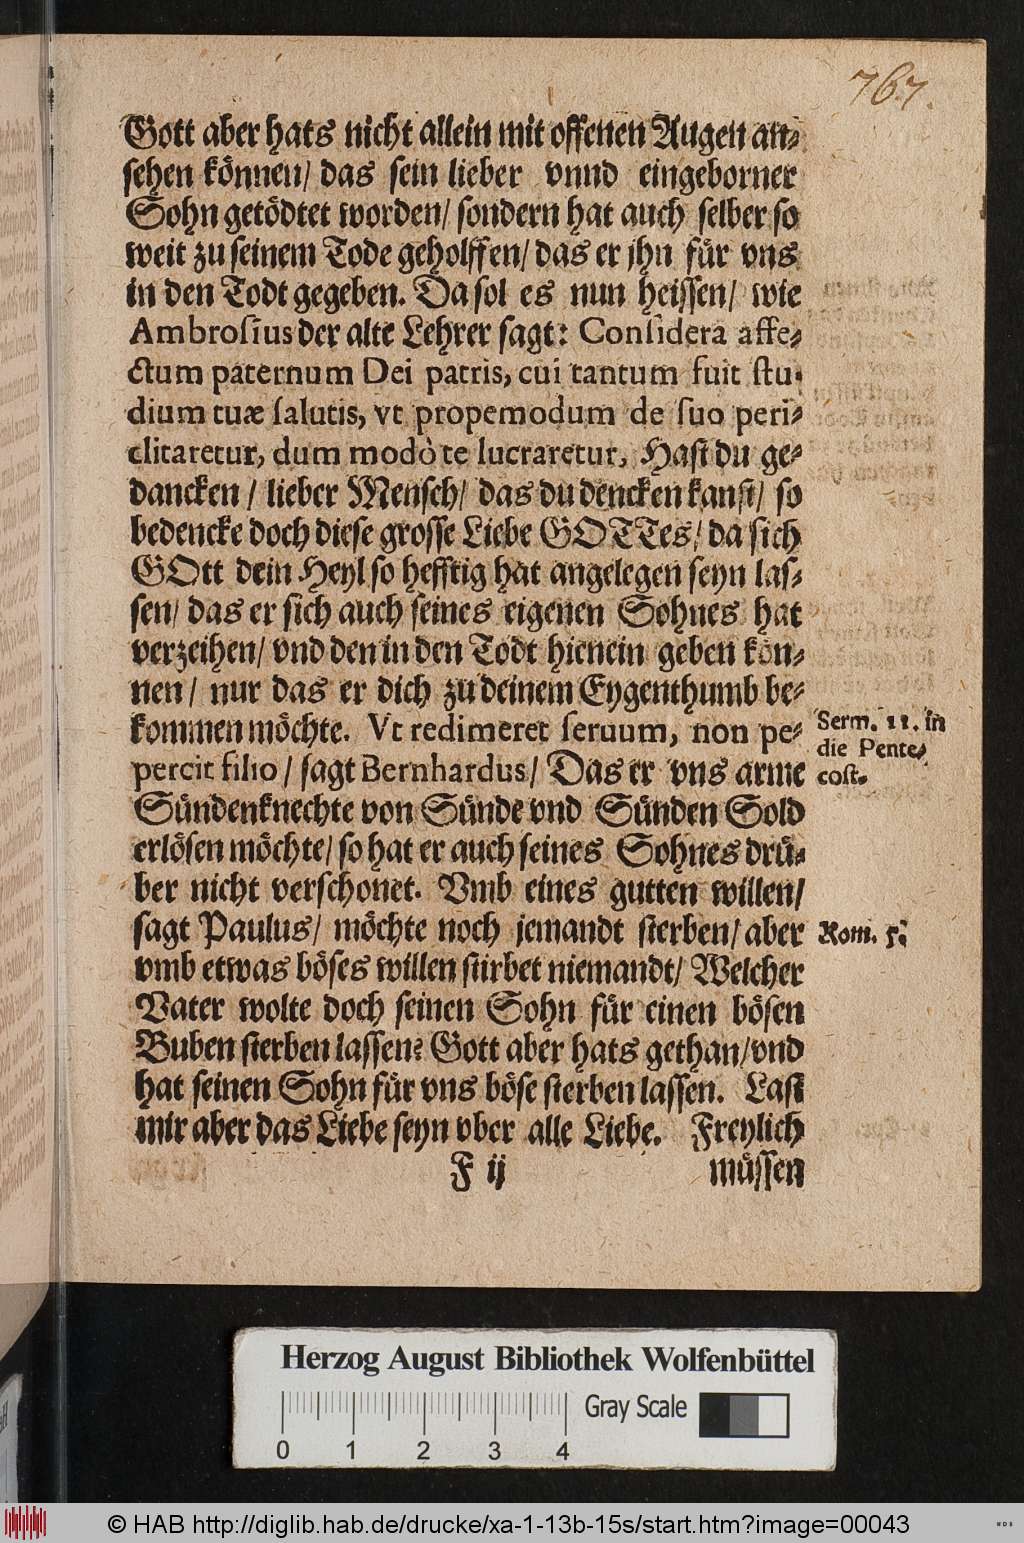 767.
Gott aber hats nicht allein mit offenen Augen an-
sehen können/ das sein lieber vnnd eingeborner
Sohn getödtet worden/ sondern hat auch selber so
weit zu seinem Tode geholffen/ das er jhn für vns
in den Todt gegeben. Da sol es nun heissen/ wie
Ambrosius der alte Lehrer sagt: Considera affe-
ctum paternum Dei patris, cui tantum fuit stu-
dium tuæ salutis, vt propemodum de suo peri-
clitaretur, dum modò te lucraretur, Hast du ge-
dancken / lieber Mensch/ das du dencken kanst/ so
bedencke doch diese grosse Liebe GOTTes/ da sich
GOtt dein Heyl so hefftig hat angelegen seyn las-
sen/ das er sich auch seines eigenen Sohnes hat
verzeihen/ vnd den in den Todt hienein geben kön-
nen/ nur das er dich zu deinem Eygenthumb be-
kommen möchte. Vt redimeret seruum, non pe-
percit filio / sagt Bernhardus/ Das er vns arme
Sündenknechte von Sünde vnd Sünden Sold
erlösen möchte/ so hat er auch seines Sohnes drü-
ber nicht verschonet. Vmb eines gutten willen/
sagt Paulus/ möchte noch jemandt sterben/ aber
vmb etwas böses willen stirbet niemandt/ Welcher
Vater wolte doch seinen Sohn für einen bösen
Buben sterben lassen? Gott aber hats gethan/ vnd
hat seinen Sohn für vns böse sterben lassen. Last
mir aber das Liebe seyn vber alle Liebe. Freylich
F ij müssen
Serm. 11. in
die Pente-
cost.
Rom. 5.
Herzog August Bibliothek Wolfenbüttel
0 1 2 3 4
Gray Scale
© HAB http://diglib.hab.de/drucke/xa-1-13b-15s/start.htm?image=00043